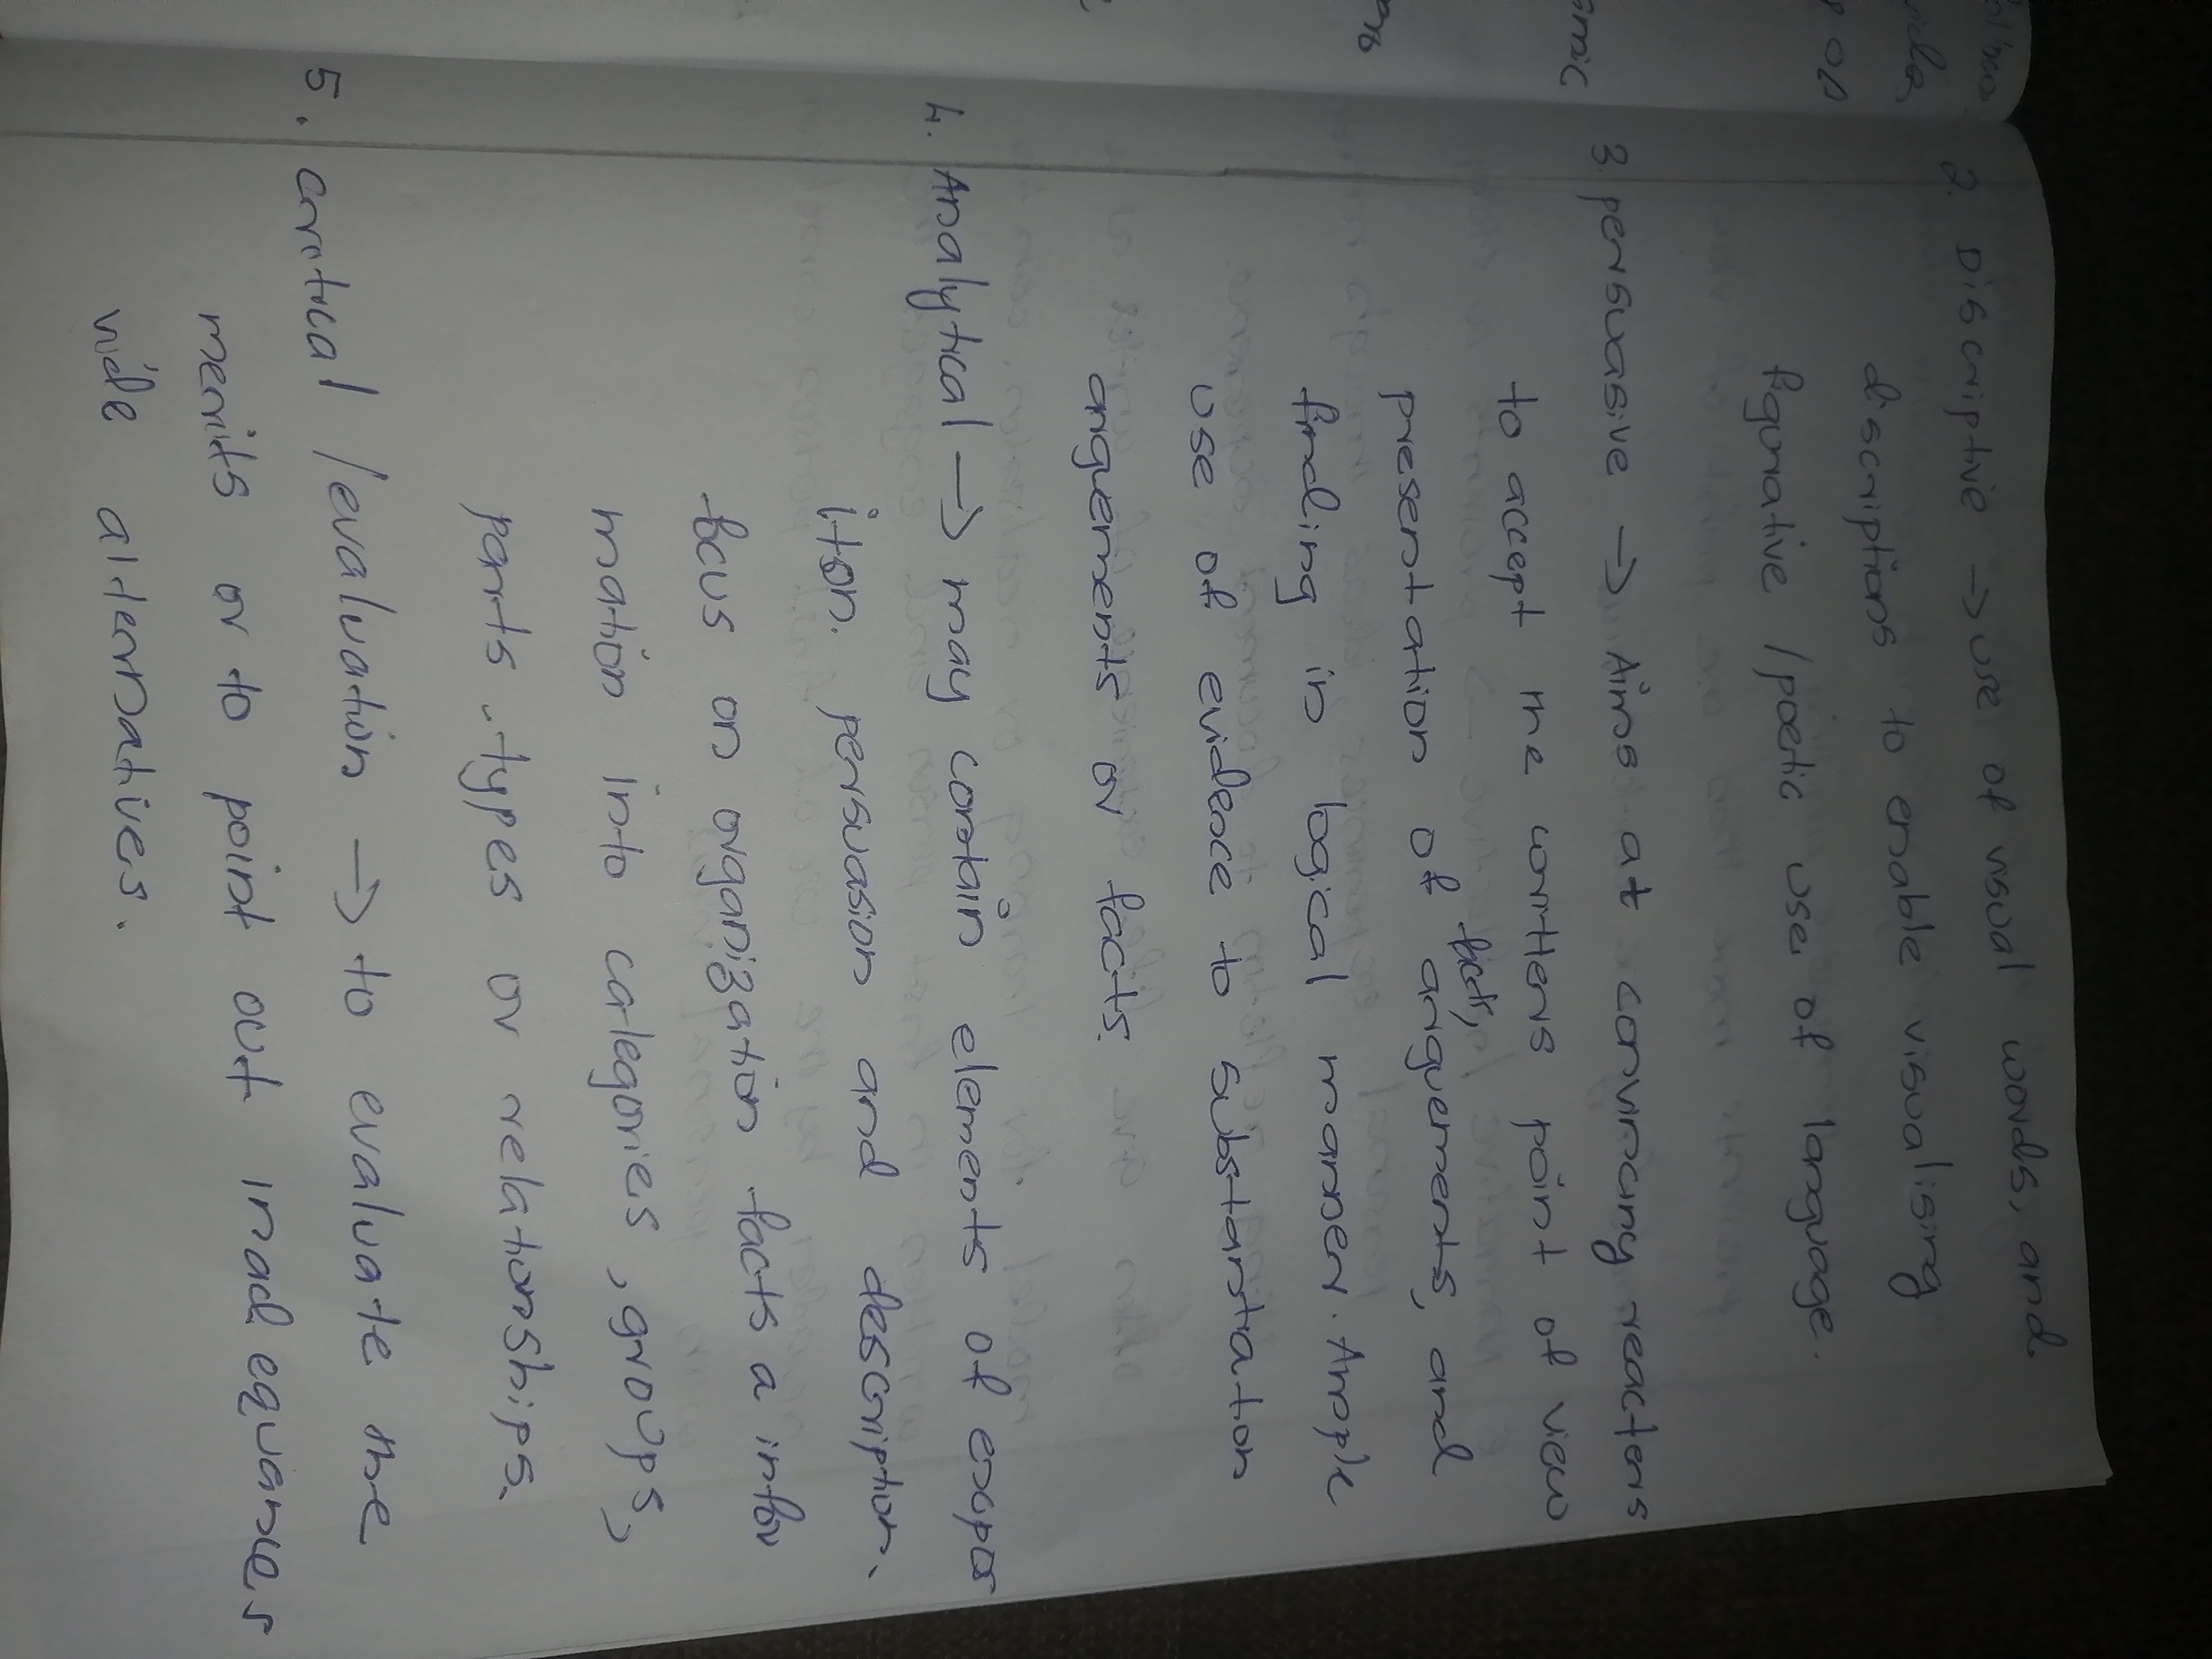 2. Discriptive → use of visual words, and
discriptions to enable visualising
figurative / poetic use of language.
3. persuasive → Aims at convincing reacters
to accept the writers point of view
presentation of facts, arguements, and
finding in logical manner. Ample
use of evidence to substantiation
arguements or facts.
4. Analytical → may contain elements of expos
ition. persuasion and description.
focus on organization facts a infor
mation into categories, groups,
parts, types or relationships.
5. critical / evaluation → to evaluate the
merits or to point out inadequances
vide alternatives.